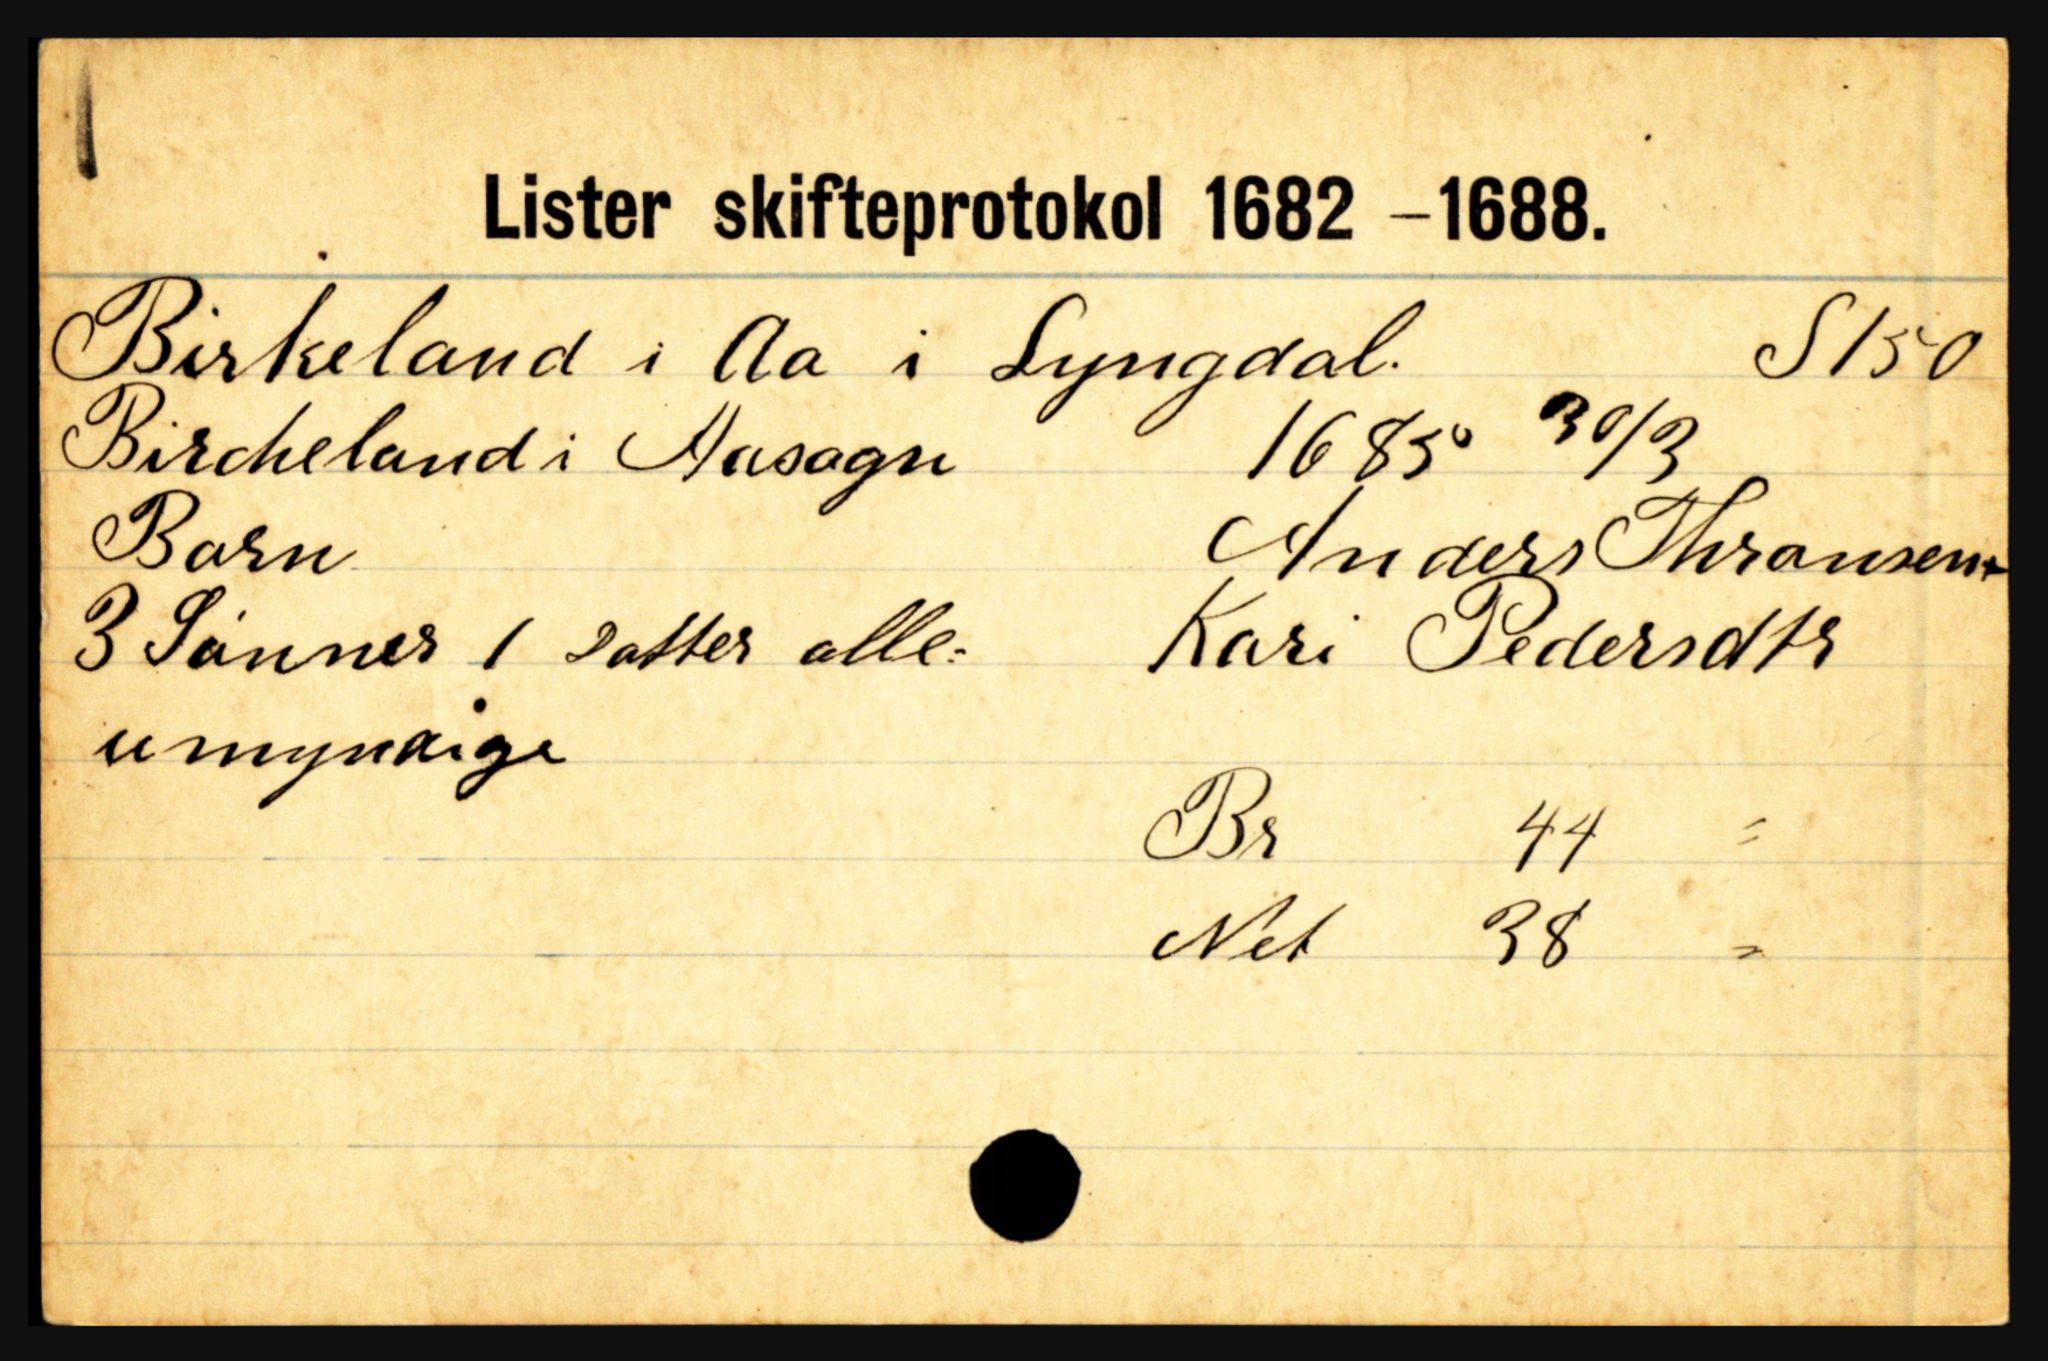 Lister skifteprotokol 1682 – 1688.
Birkeland i Aa i Lyngdal. S 150
Bircheland i Aasogn 1685 30/3
Barn Anders Thronsen +
3 Sønner 1 datter alle: Kari Pedersdtr
umyndige
Br 44 "
Net 38 "